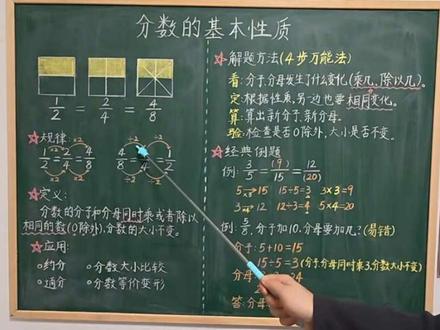 分数的基本性质
1/2 = 2/4 = 4/8
☆规律:
×2 ×2
1/2 = 2/4 = 4/8
×2 ×2
÷2 ÷2
4/8 = 2/4 = 1/2
÷2 ÷2
☆定义:
分数的分子和分母同时乘或者除以
相同的数(0除外),分数的大小不变。
☆应用:
○约分 ○分数大小比较
○通分 ○分数等价变形
☆解题方法(4步万能法)
看:分子分母发生了什么变化(乘几、除以几)。
定:根据性质,另一边也要相同变化。
算:算出新分子、新分母。
验:检查是否0除外,大小是否不变。
☆经典例题
例: 3/5 = (9)/15 = 12/(20)
5 ×3→ 15 15÷5=3 3×3=9
3 ×4→ 12 12÷3=4 5×4=20
例: 分子加10,分母要加几?(易错)
分子:5+10=15
15÷5=3(分子分母同时乘3,分数大小不变)
分母
答:分母